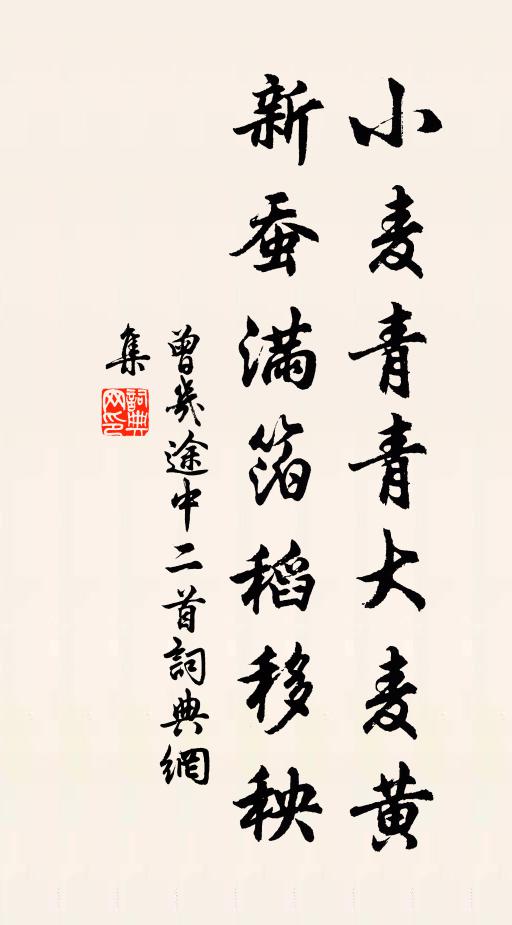 小麦青青大麦黄
新蚕满箔稻移秧
曾幾途中二首詞典網
集
詞典
网印